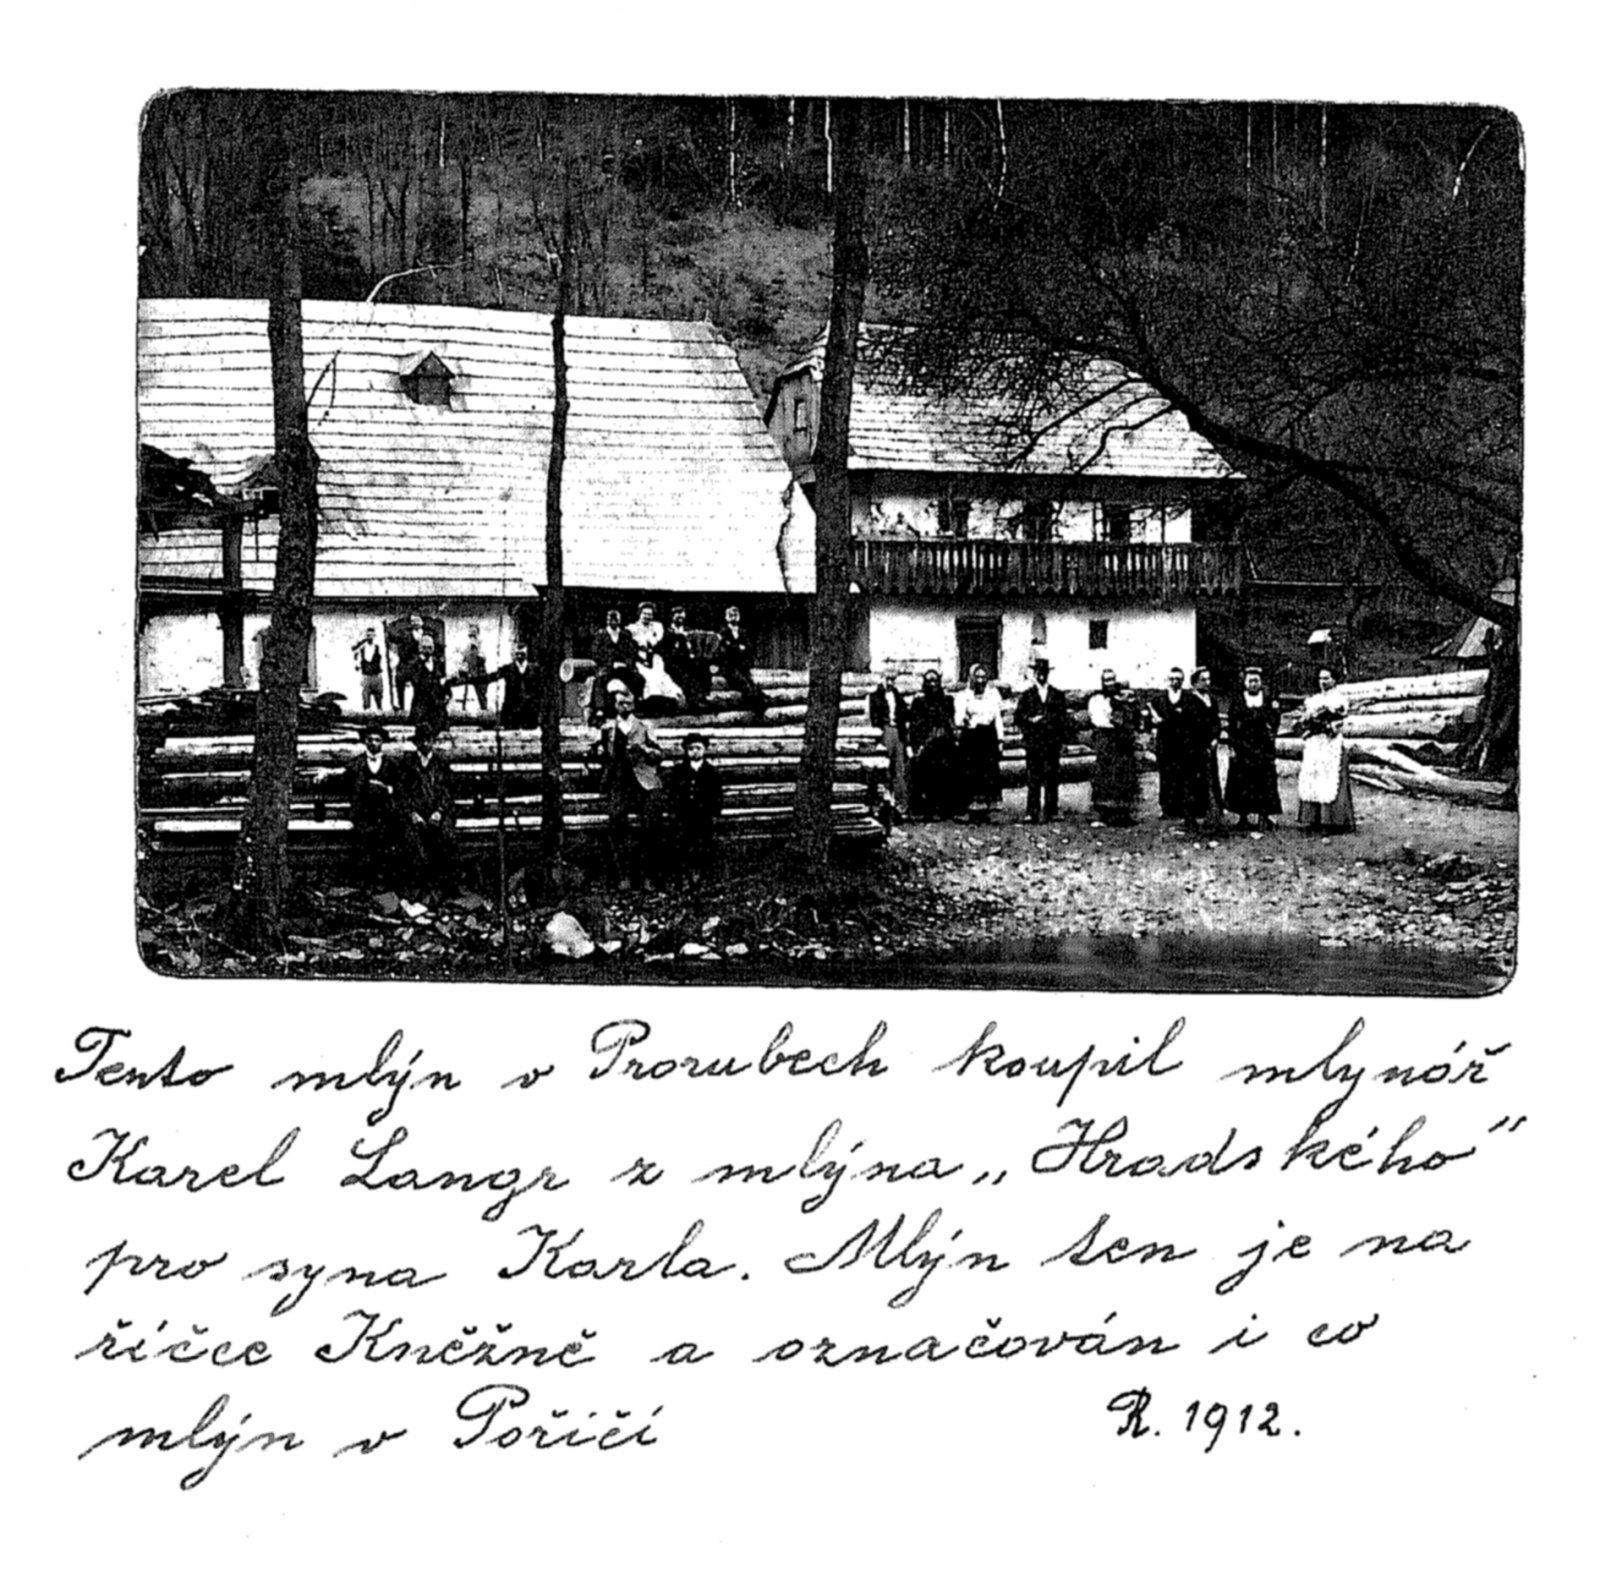 Tento mlýn v Prorubech koupil mlynář
Karel Langr z mlýna „Hradského“
pro syna Karla. Mlýn ten je na
říčce Kněžně a označován i co
mlýn v Poříčí
R. 1912.